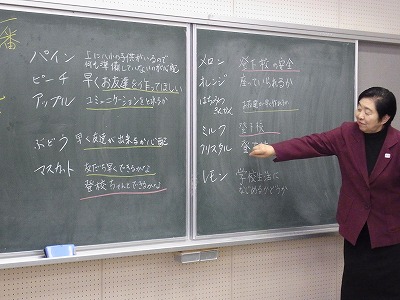 番
パイン 上に小の子供がいるので
何も準備していないのが心配
ピーチ 早くお友達を作ってほしい
アップル コミュニケーションをとれるか
ぶどう 早く友達が出来るか心配
マスカット 友だち早くできるかな
登校ちゃんとできるかな
メロン 登下校の安全
オレンジ 座っていられるか
はちみつ
ミルク 登下校
クリスタル
レモン 学校生活に
なじめるかどうか